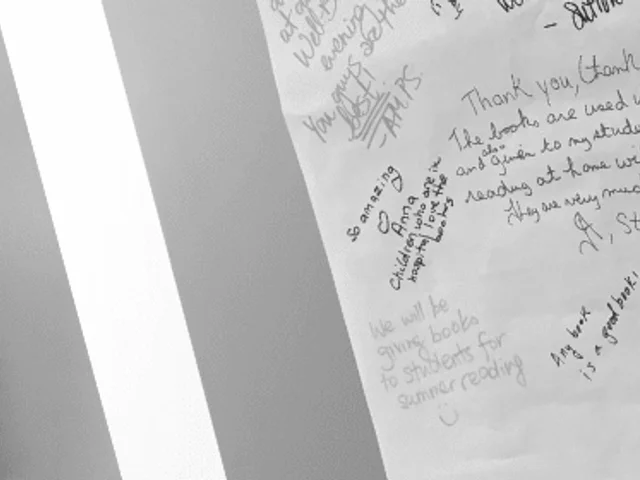 Well
evening
You guys are the
best!
- AMPS.
- Sutton
Thank you, (thank
The books are used
also
and given to my study
reading at home wi
They are very muc
So amazing
Anna
Children who are in
hospital love the
books
We will be
giving books
to students for
summer reading
Any book
is a good book!